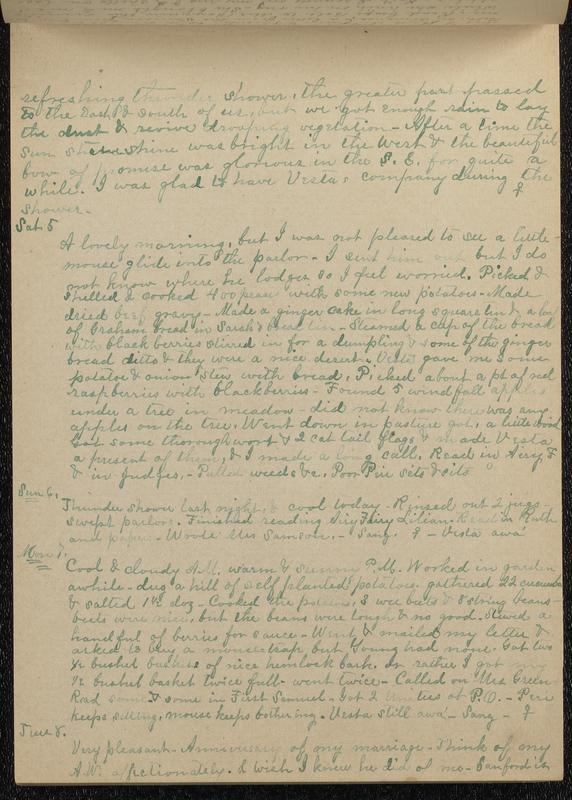 refreshing thunder shower, the greater part passed
to the East & South of us, but we got enough rain to lay
the dust & revive drooping vegetation - After a time the
sun shine was bright in the West & the beautiful
bow of promise was glorious in the S. E. for quite a
while. I was glad to have Vesta's company during the
shower -
Sat 5
A lovely morning, but I was not pleased to see a little
mouse glide into the parlor - I sent him out but I do
not know where he lodges so I feel worried. Picked &
shelled & cooked 400 peas with some new potatoes - Made
dried beef gravy - Made a ginger cake in long square tin & a loaf
of Graham bread in Sarah's bread tin - Steamed a cup of the bread
with black berries stirred in for a dumpling & some of the ginger
bread ditto & they were a nice desert. Vesta gave me some
potatoe & onion stew with bread. Picked about a pt of red
raspberries with blackberries - Found 5 windfall apples
under a tree in meadow - did not know there was any
apples on the tree. Went down in pasture got a little wood
Got some thoroughwort & 2 cat tail flags & made Vesta
a present of them, & I made a long call. Read in Airy F
& in Judges. - Pulled weeds &c. Poor Piri sits & sits
Sun 6.
Thunder shower last night, & cool today - Rinsed out 2 jugs -
swept parlor. Finished reading Airy Fairy Lilian. Read in Ruth
and papers - Wrote Mrs Samson. - Sang. - Vesta awa'
Mon 7.
Cool & cloudy A.M. warm & sunny P.M. Worked in garden
awhile - dug a hill of self planted potatoes, gathered 22 cucumbers
& salted 1½ doz - Cooked the potatoes, 3 wee beets & 8 string beans -
beets were nice, but the beans were tough & no good. Stewed a
handful of berries for sauce - Went & mailed my letter &
asked to buy a mousetrap but Young had none. Got two
½ bushel baskets of nice hemlock bark, or rather I got my
½ bushel basket twice full - went twice - Called on Mrs Green
Read some & some in First Samuel - Got 2 at P.O. - Piri
keeps sitting, mouse keeps bothering - Vesta still awa' - Sang -
Tues 8.
Very pleasant - Anniversary of my marriage - Think of my
A.W. affectionately. & wish I knew he did of me - Sanford is